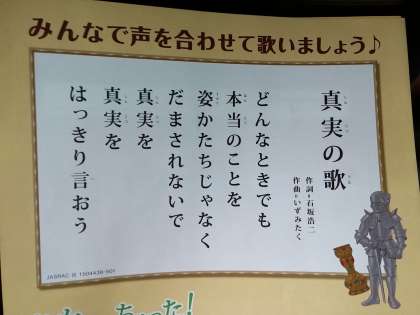 みんなで声を合わせて歌いましょう♪
真実の歌
作詞：石坂浩二
作曲：いずみたく
どんなときでも
本当のことを
姿かたちじゃなく
だまされないで
真実を
真実を
はっきり言おう
JASRAC 出 1504438-501